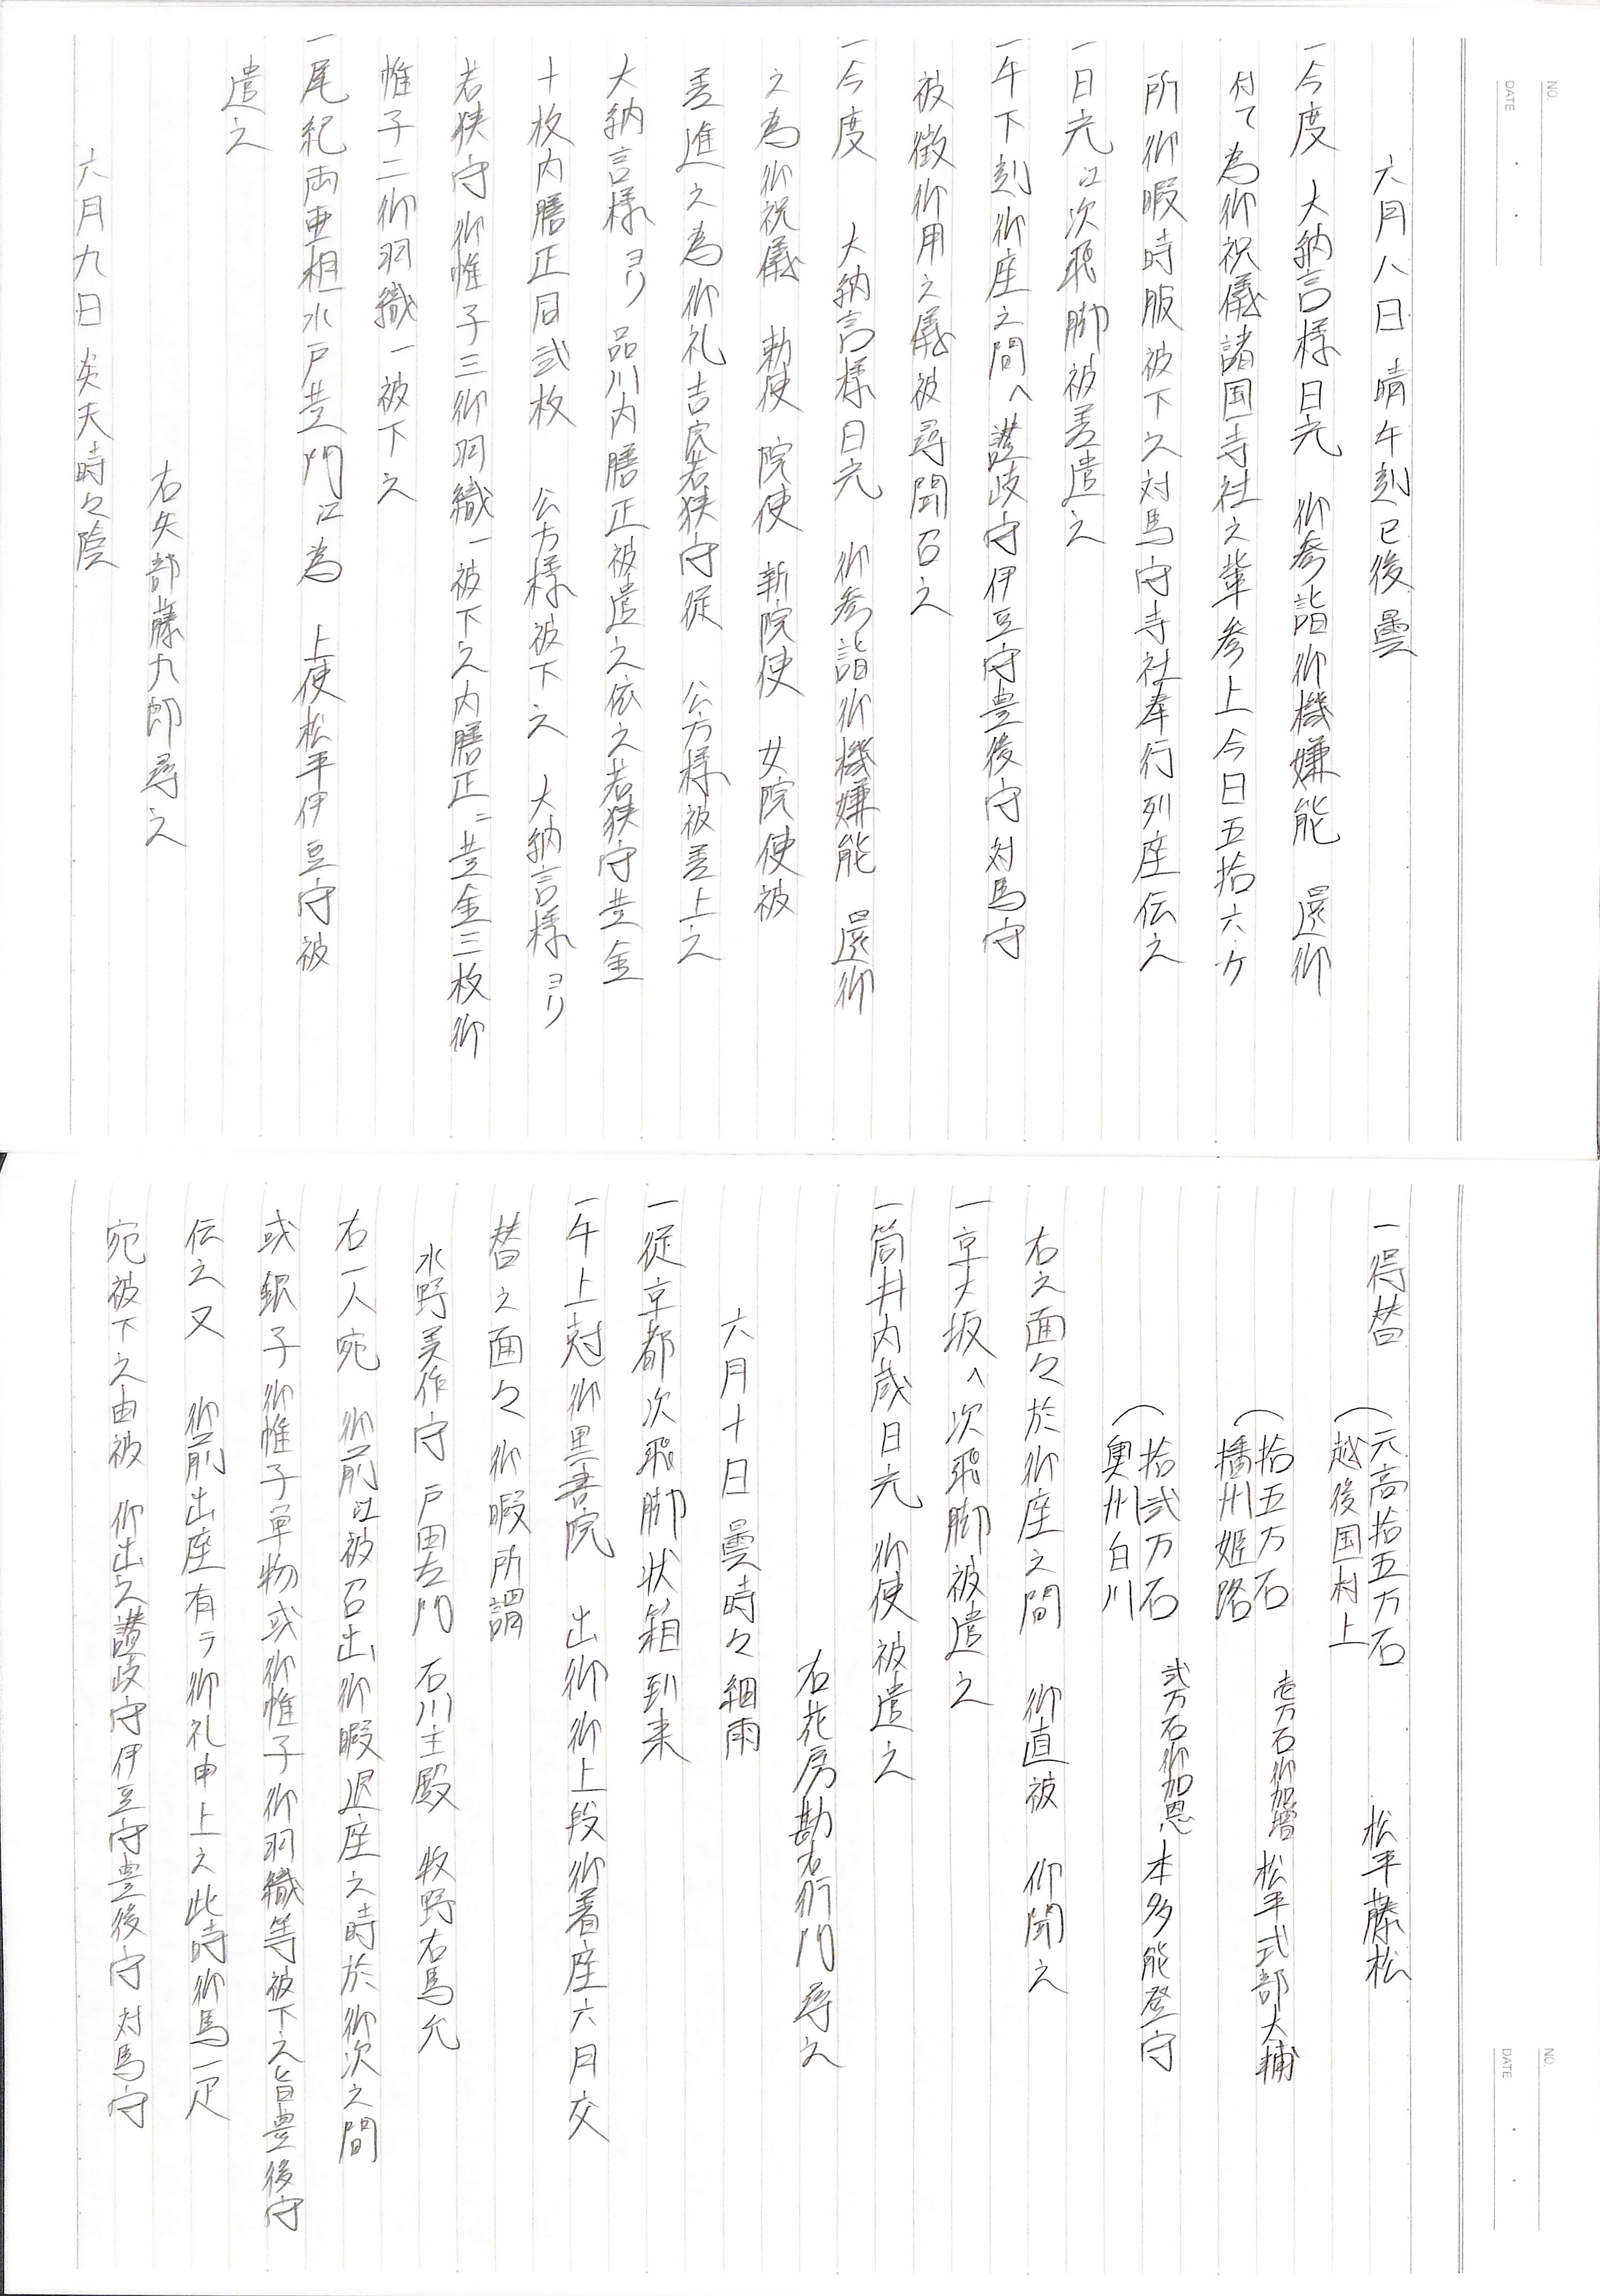 NO.
DATE
六月八日 晴午刻已後曇
一今度 大納言様日光 御参詣御機嫌能 還御
付て為御祝儀諸国寺社之輩参上今日五拾六ケ
所御暇時服被下之対馬守寺社奉行列座伝之
一日光江次飛脚被差遣之
一午下刻御座之間へ讃岐守伊豆守豊後守対馬守
被徴御用之儀被尋聞召之
一今度 大納言様日光 御参詣御機嫌能 還御
之為御祝儀 勅使 院使 新院使 女院使被
差進之為御礼吉良若狭守従 公方様被差上之
大納言様ヨリ品川内膳正被遣之依之若狭守金
十枚内膳正同弐枚 公方様被下之 大納言様ヨリ
若狭守御帷子三御羽織一被下之内膳正ニ金三枚御
帷子二御羽織一被下之
一尾紀両亜相水戸黄門江為 上使松平伊豆守被
遣之
右矢部藤九郎尋之
六月九日 炎天時々陰
NO.
DATE
一得替
(元高拾五万石
越後国村上 松平藤松
(拾五万石
播州姫路 壱万石御加増 松平式部大輔
(拾弐万石
奥州白川 弐万石御加恩 本多能登守
右之面々於御座之間 御直被 仰聞之
一京大坂へ次飛脚被遣之
一筒井内蔵日光 御使被遣之
右花房勘右衛門尋之
六月十日 曇時々細雨
一従京都次飛脚状箱到来
一午上刻御黒書院 出御御上段御着座六月交
替之面々御暇所謂
水野美作守 戸田左門 石川主殿 牧野右馬允
右一人宛 御前江被召出御暇退座之時於御次之間
或銀子御帷子単物或御帷子御羽織等被下之旨豊後守
伝之又 御前出座有テ御礼申上之此時御馬一疋
宛被下之由被 仰出之讃岐守伊豆守豊後守対馬守